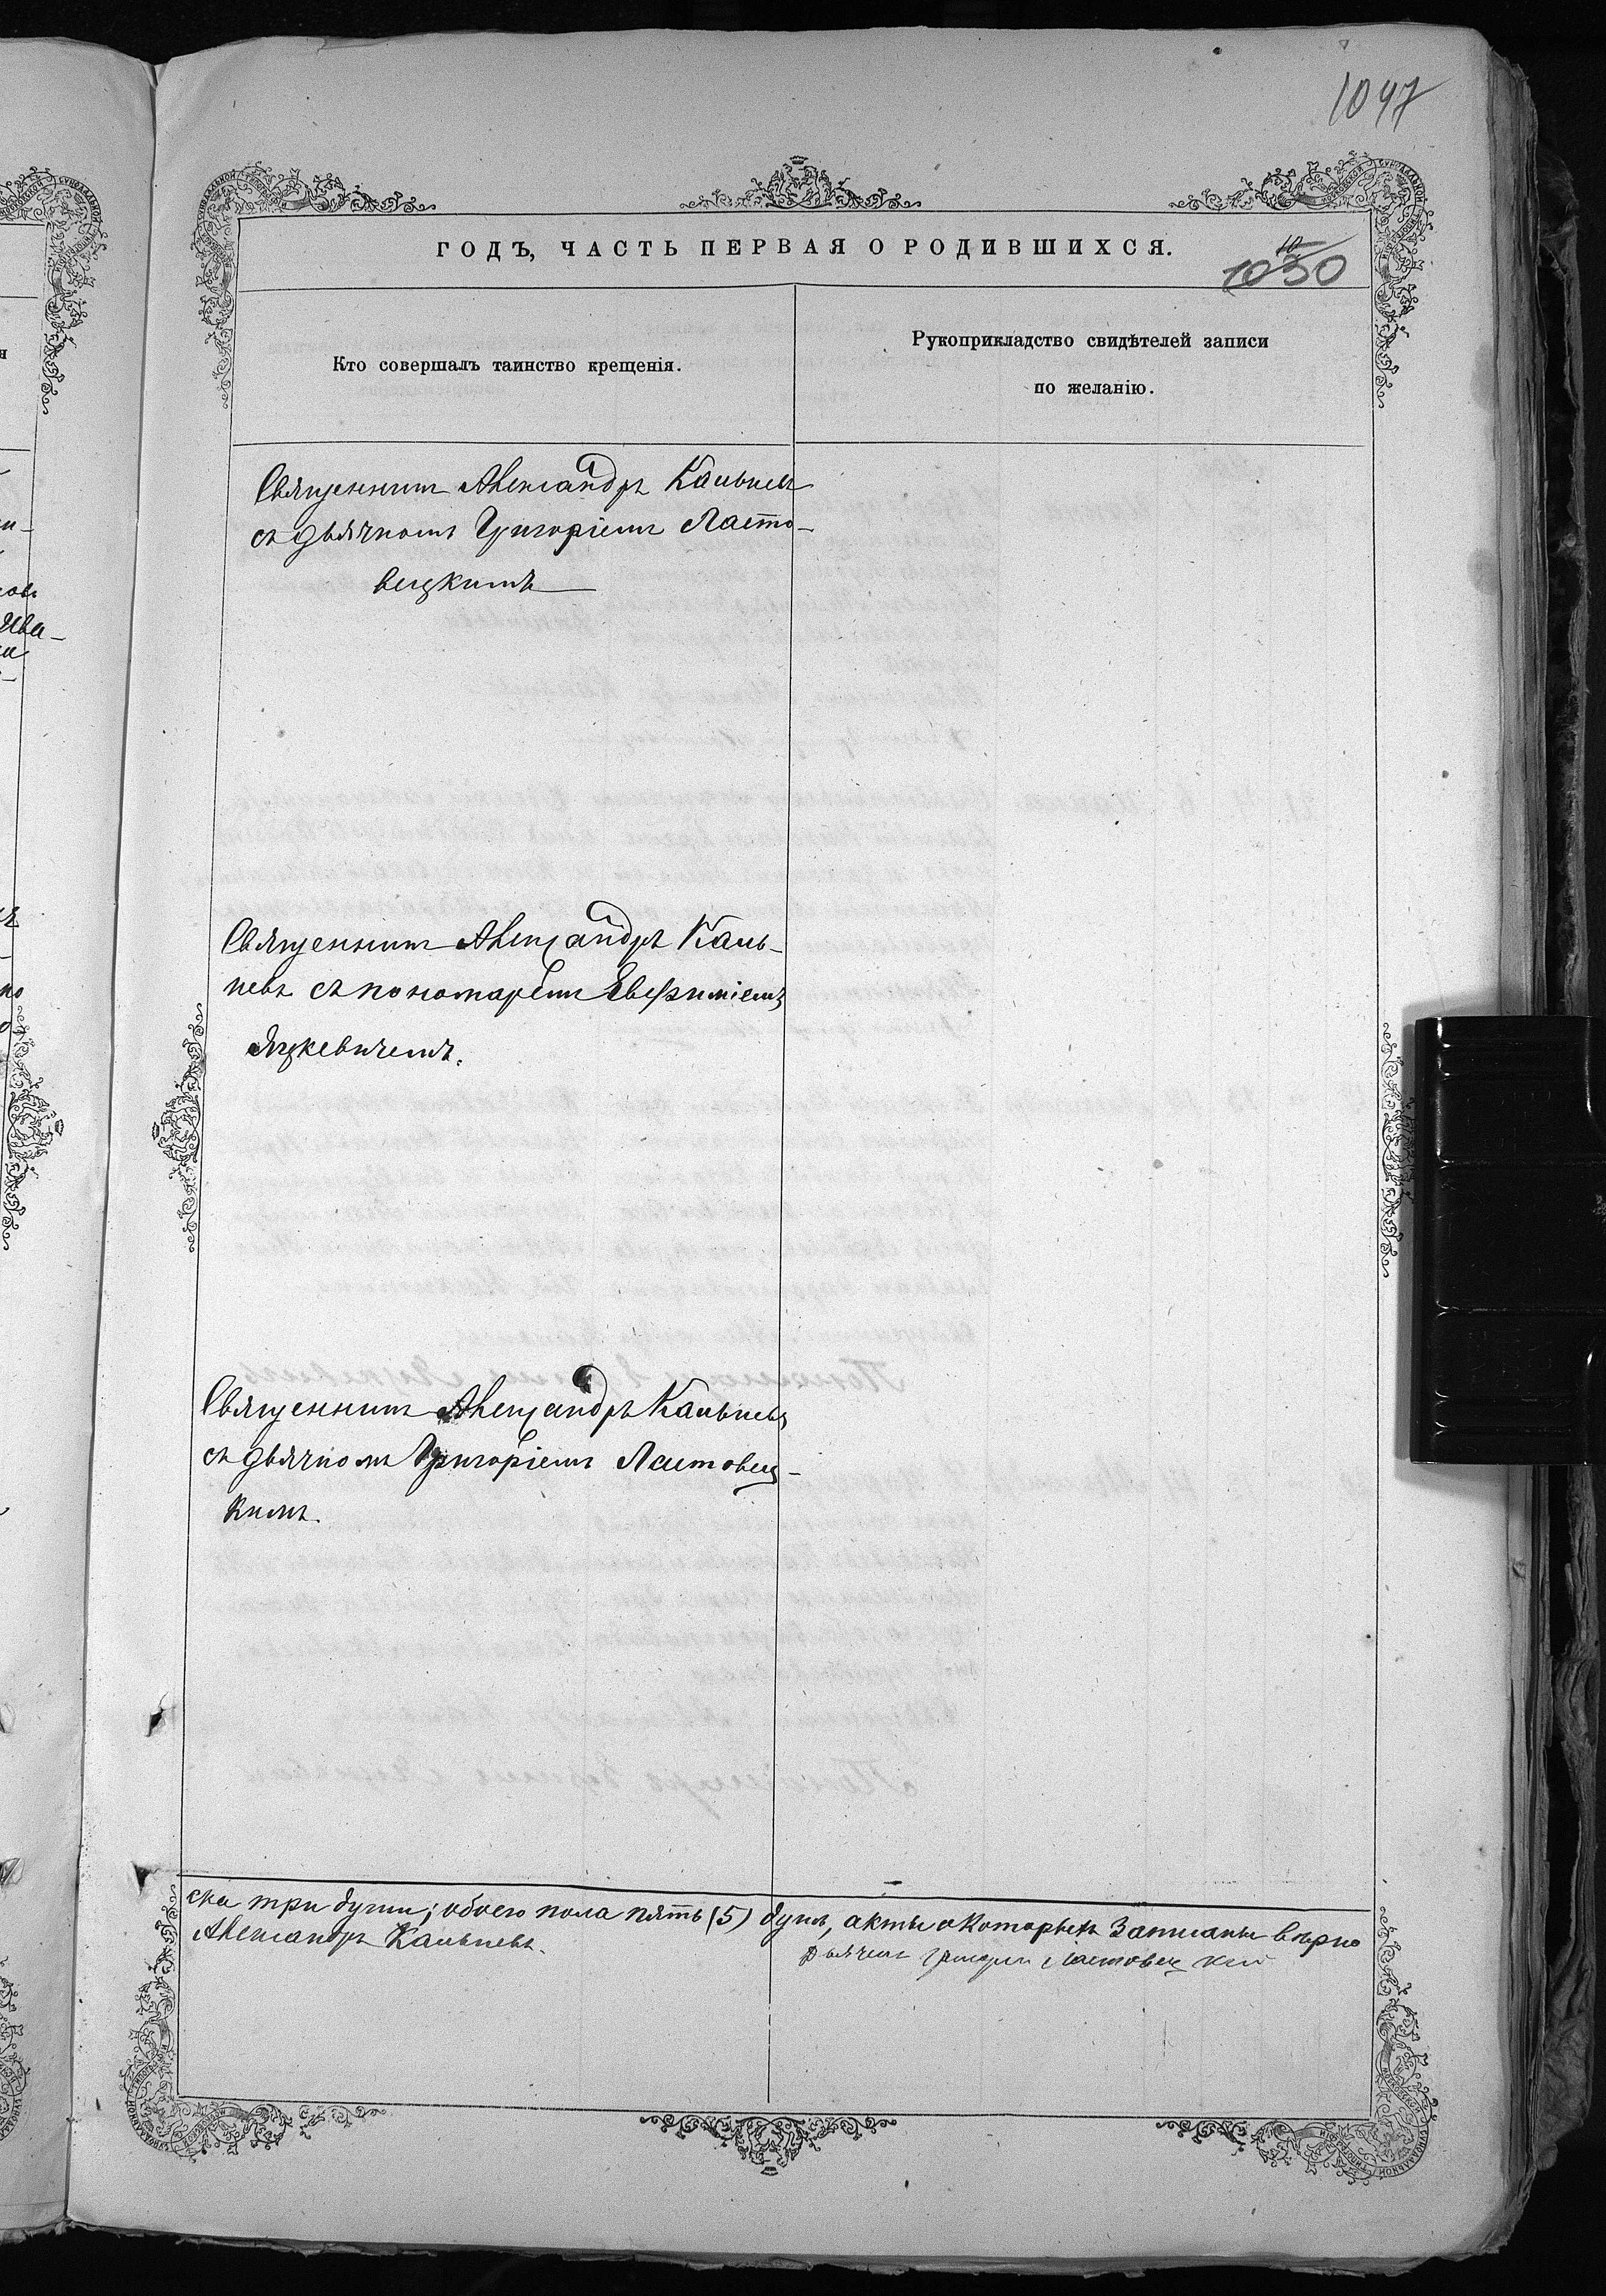 1047
ГОДЪ, ЧАСТЬ ПЕРВАЯ О РОДИВШИХСЯ.
1050
Кто совершалъ таинство крещенія.
Рукоприкладство свидѣтелей записи
по желанію.
Священникъ Александръ Кальневъ
съ дьячкомъ Григоріемъ Ласто-
вецкимъ
Священникъ Александръ Каль-
невъ съ пономаремъ Евфиміемъ
Яцкевичемъ.
Священникъ Александръ Кальневъ
съ дьячкомъ Григоріемъ Ластовец-
кимъ.
ска три души; обоего пола пять (5) душъ, акты о которыхъ записаны вѣрно
Александръ Кальневъ.
Дьячекъ Григорій Ластовецкій